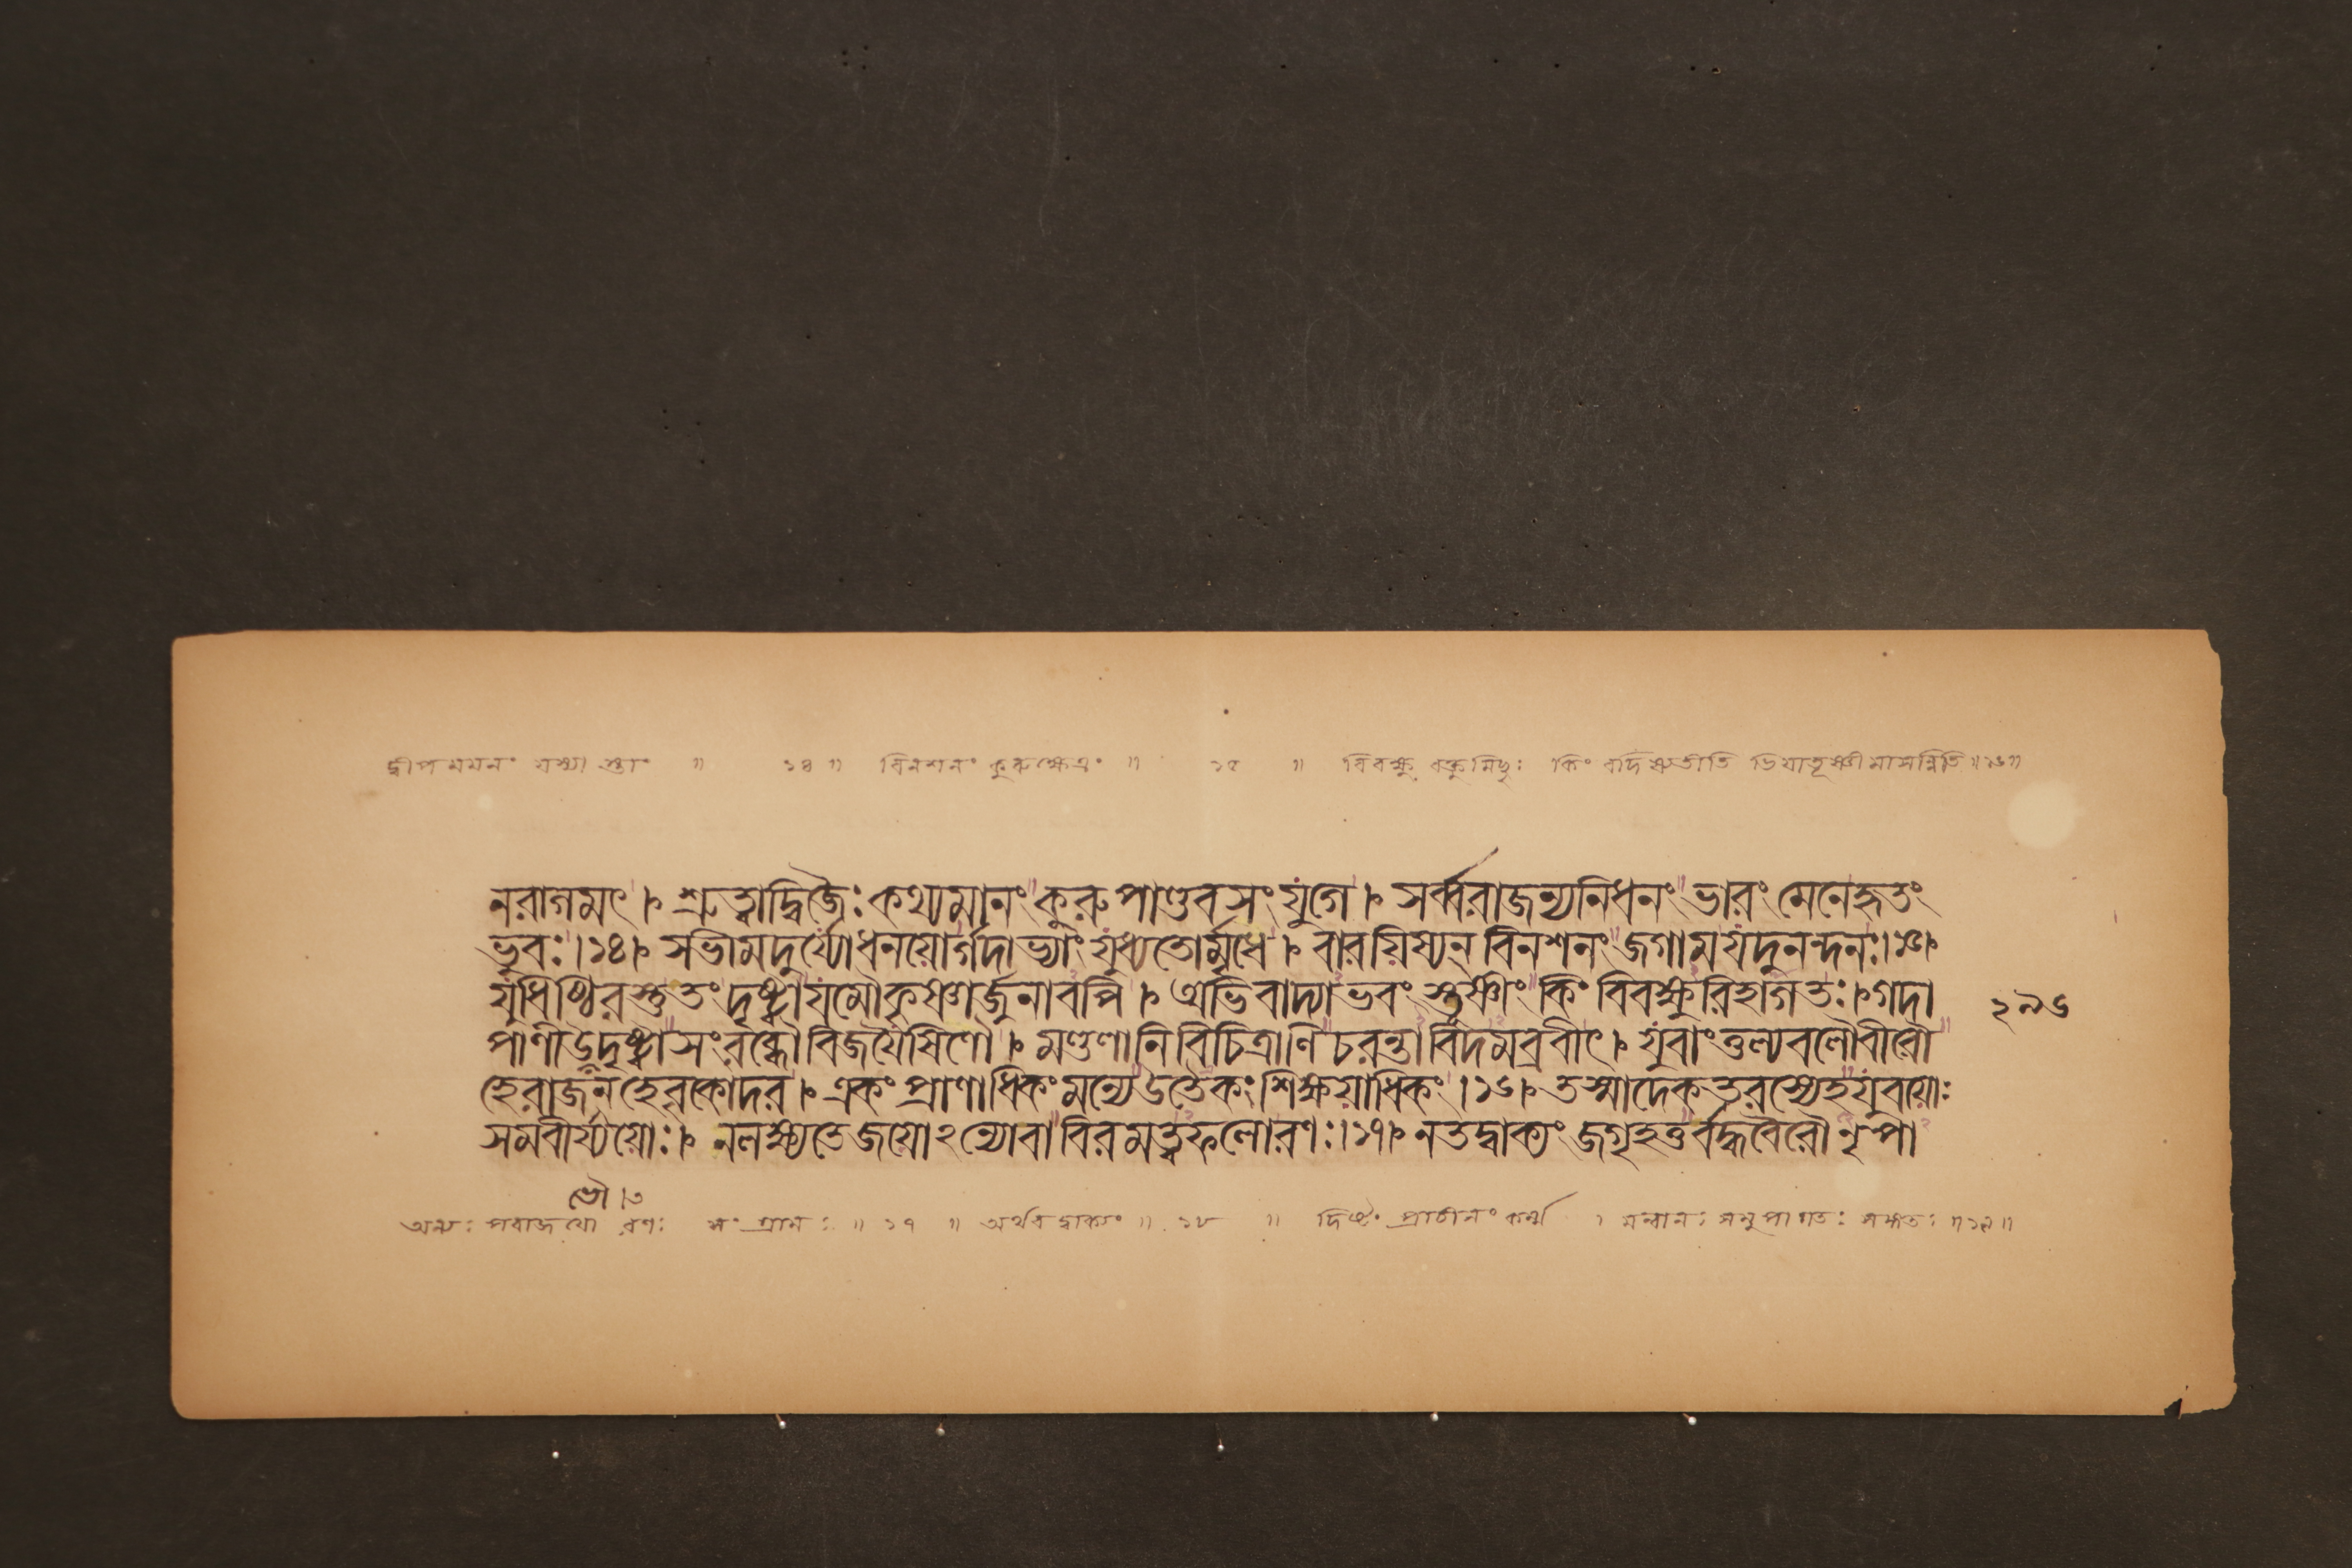 দ্বীপমমনং যস্যাস্তাং ॥ ১৪ ॥ বিনশনং কুরুক্ষেত্রং ॥ ১৫ ॥ বিবক্ষু র্বক্তুমিচ্ছুঃ কিং বদিষ্যতীতি ভিয়াতূষ্ণীমাসন্নিতি ॥ ১৬ ॥
নরাগমৎ । শ্রুত্বাদ্বিজৈঃ কথ্যমানং কুরুপাণ্ডবসংযুগে । সর্ব্বরাজন্যনিধনং ভারং মেনেহৃতং
ভুবঃ । ১৪ । সভীমদুর্য্যোধনয়োর্গদাভ্যাং যুধ্যতোর্মৃধে । বারয়িষ্যন্ বিনশনং জগামযদুনন্দনঃ । ১৫ ।
যুধিষ্ঠিরস্তুতং দৃষ্ট্বাযমৌকৃষ্ণার্জুনাবপি । অভিবাদ্যাভবং স্তূষ্ণীং কিং বিবক্ষুরিহাগতঃ । গদা
পাণীউভৌদৃষ্ট্বাসংরব্ধৌবিজয়ৈষিণৌ । মণ্ডলানিবিচিত্রাণিচরন্তাবিদমব্রবীৎ । যুবাংতুল্যবলৌবীরৌ
হেরাজন্ হেবৃকোদর । একং প্রাণাধিকংমন্যেউতৈকং শিক্ষয়াধিকং । ১৬ । তস্মাদেকতরস্যেহযুবয়োঃ
সমবীর্য্যয়োঃ । নলক্ষ্যতেজয়োঽন্যোবাবিরমত্বফলোরণঃ । ১৭ । নতদ্বাক্যং জগৃহতুর্বদ্ধবৈরৌনৃপা
২৯৬
ভৌ । ৩
অন্যঃ পরাজয়ো রণঃ সংগ্রামঃ ॥ ১৭ ॥ অর্থবদ্বাক্যং ॥ ১৮ ॥ দিষ্টং প্রাচীনং কর্ম্ম । ॥ ১৯ ॥